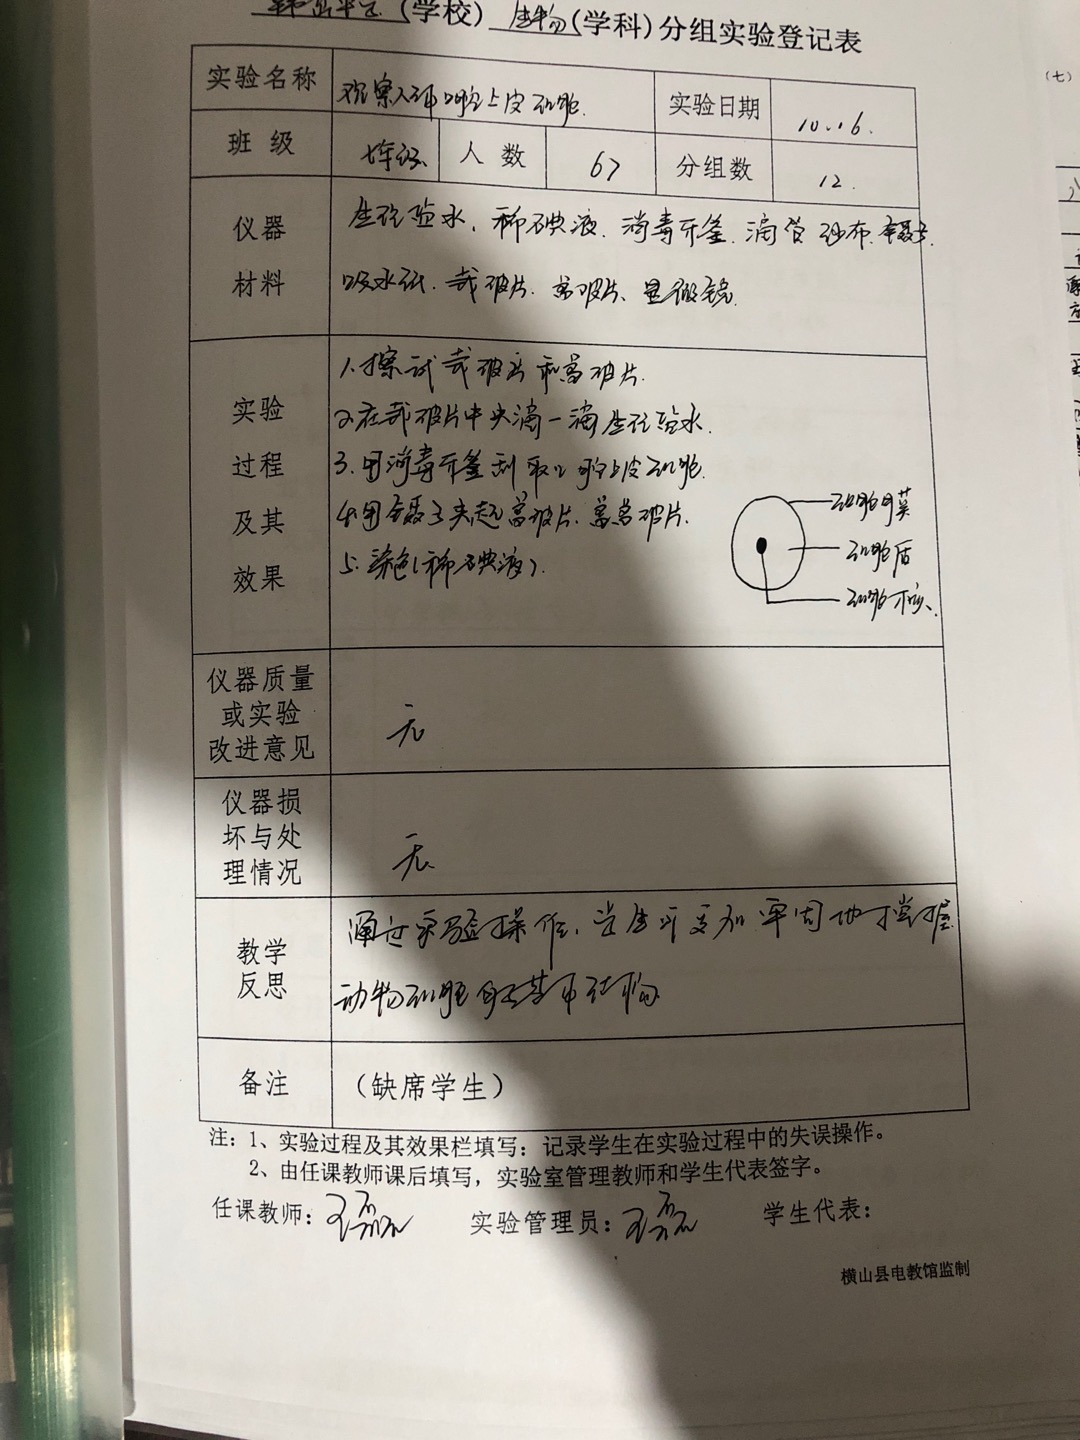 (学校) 生物 (学科) 分组实验登记表
实验名称 观察人体口腔上皮细胞. 实验日期 10.16.
班 级 七年级 人 数 67 分组数 12.
仪器
材料
生理盐水. 稀碘液. 消毒牙签. 滴管 纱布. 镊子.
吸水纸. 载玻片. 盖玻片. 显微镜.
实验
过程
及其
效果
1.擦拭载玻片和盖玻片.
2.在载玻片中央滴一滴生理盐水.
3.用消毒牙签刮取口腔上皮细胞.
4.用镊子夹起盖玻片.盖盖玻片.
5.染色(稀碘液).
细胞膜
细胞质
细胞核.
仪器质量
或实验
改进意见
无
仪器损
坏与处
理情况
无.
教学
反思
通过实验操作,学生可更加牢固地掌握
动物细胞的基本结构
备注 (缺席学生)
注: 1、实验过程及其效果栏填写: 记录学生在实验过程中的失误操作。
2、由任课教师课后填写, 实验室管理教师和学生代表签字。
任课教师: 王磊 实验管理员: 王磊 学生代表:
横山县电教馆监制
(七)